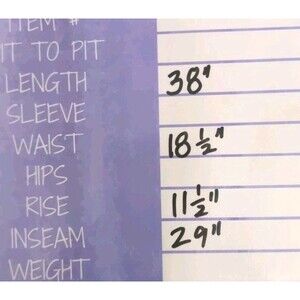 ITEM #
IT TO PIT
LENGTH 38"
SLEEVE
WAIST 18 1/2"
HIPS
RISE 11 1/2"
INSEAM 29"
WEIGHT